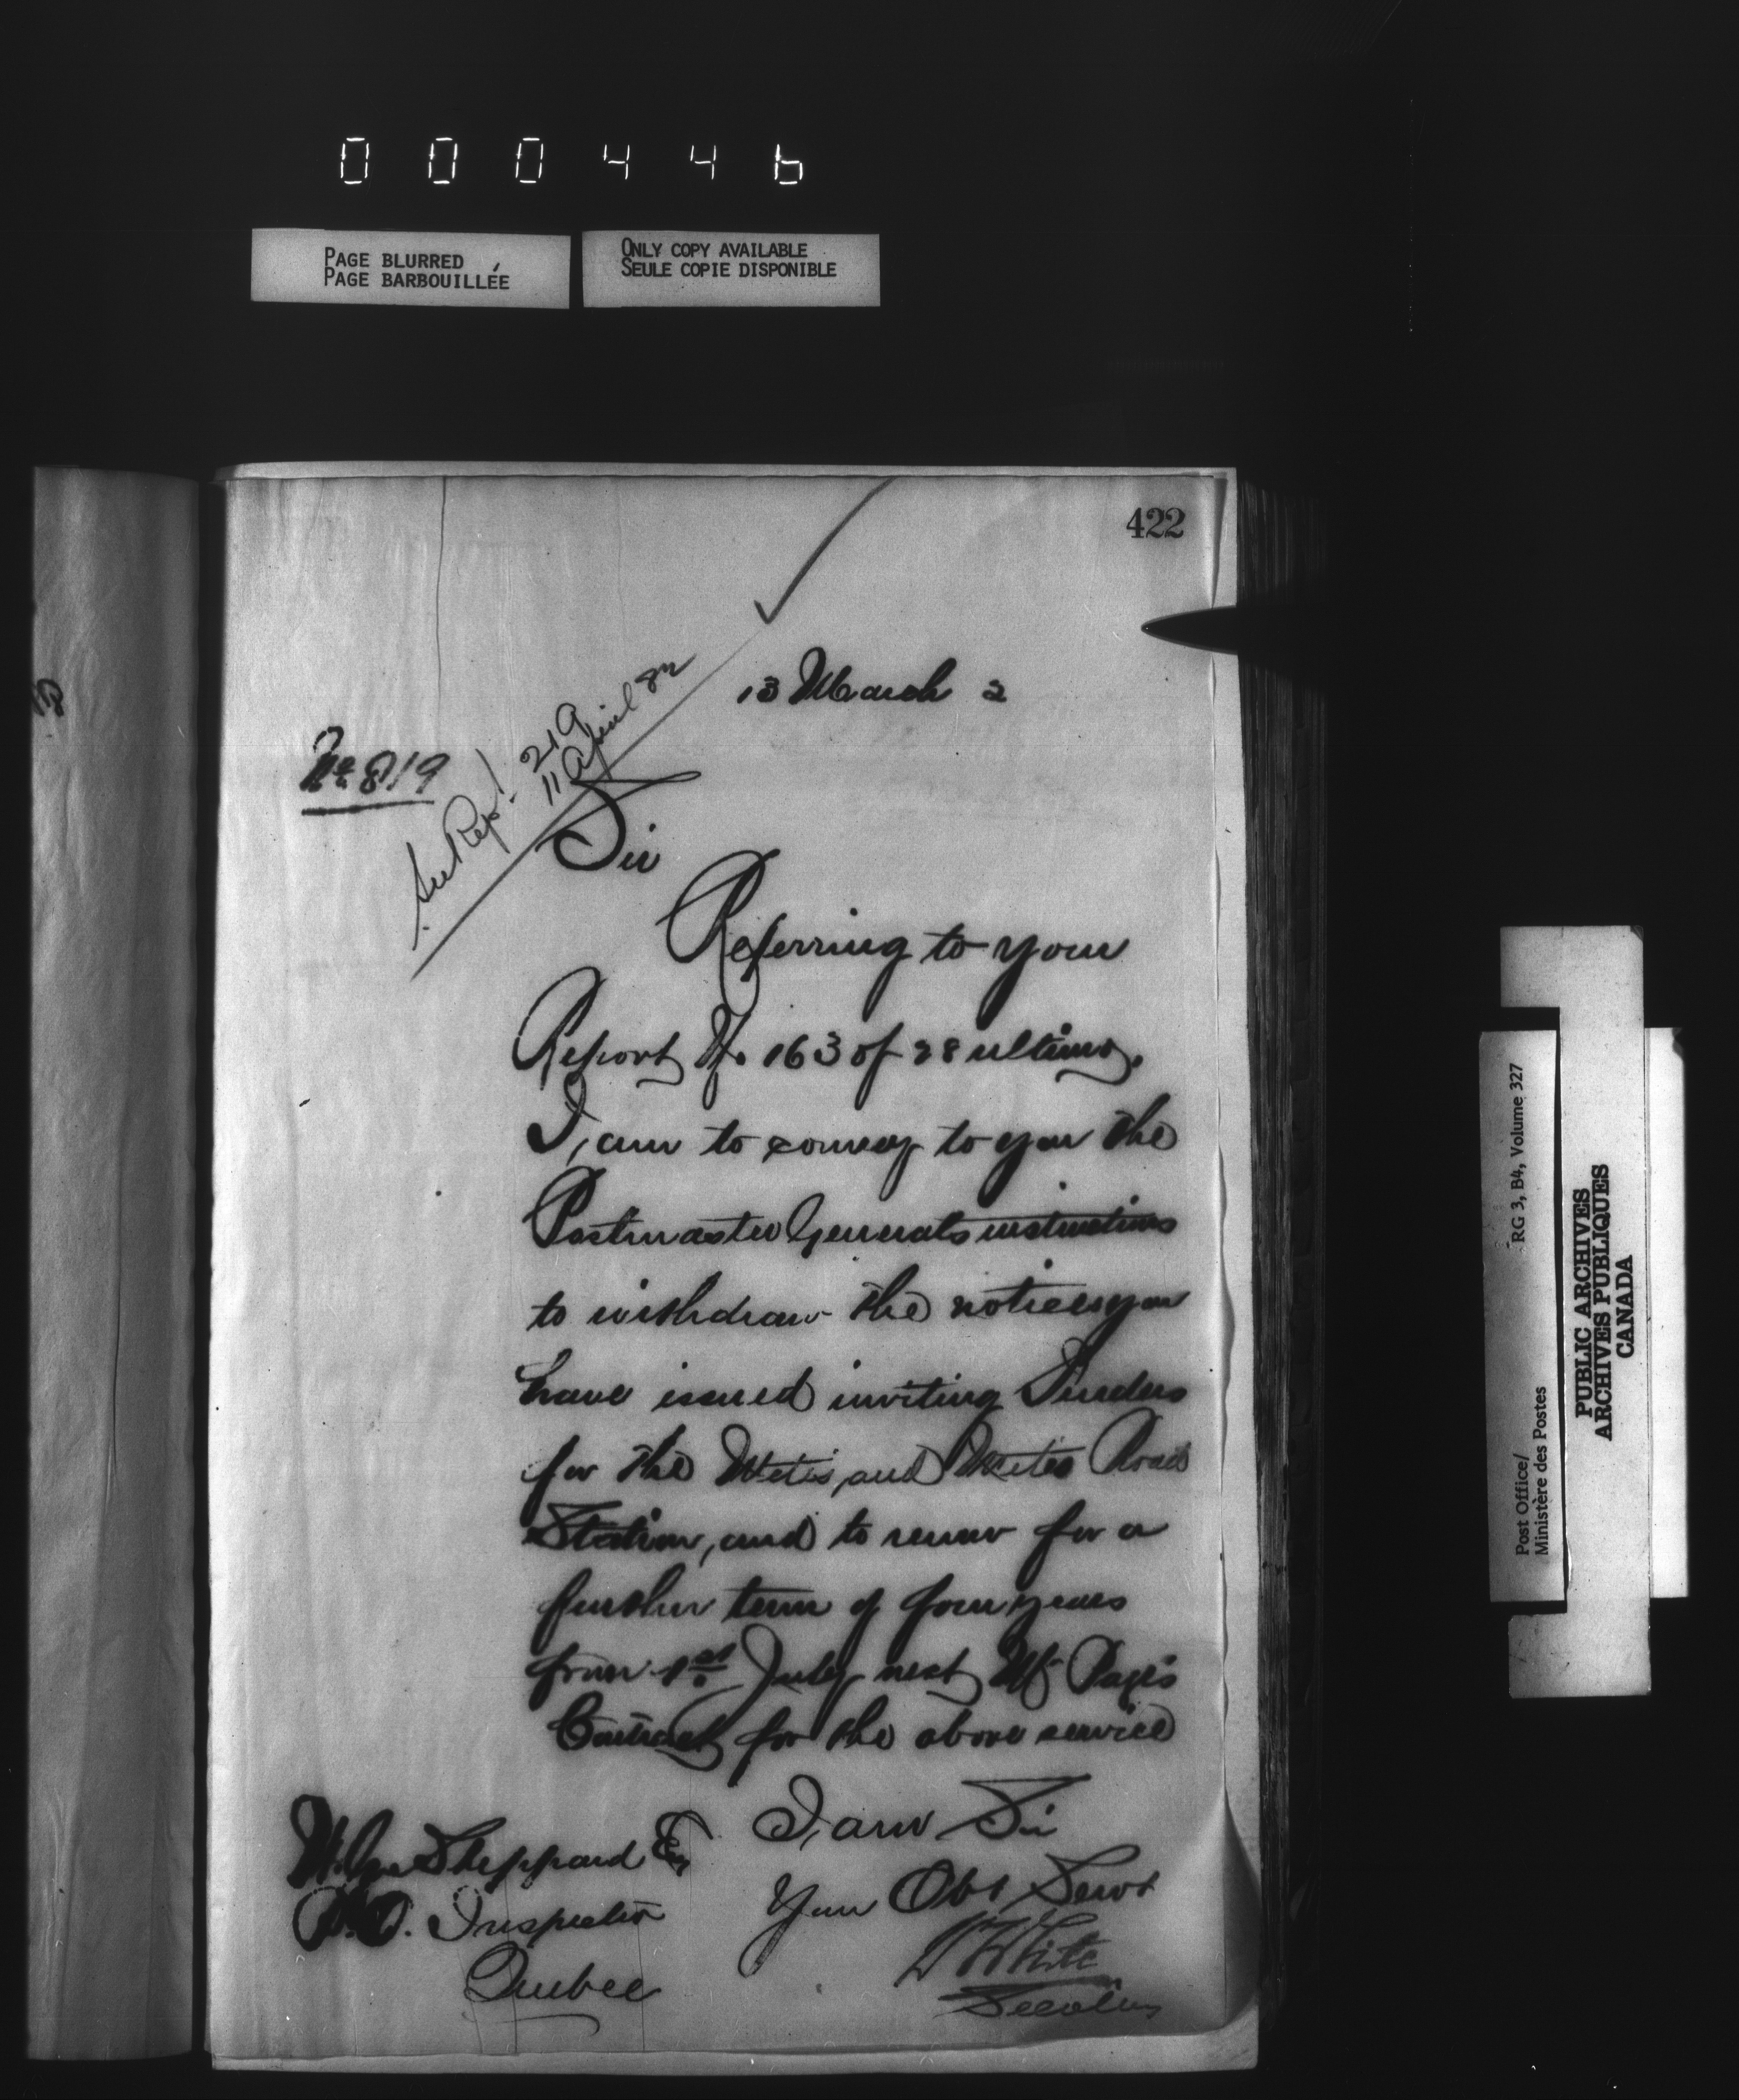 000446
PAGE BLURRED
PAGE BARBOUILLÉE
ONLY COPY AVAILABLE
SEULE COPIE DISPONIBLE
422
13 March 2
No 819
See Rept 219
11 April 82
Sir
Referring to your
Report No 163 of 28 ultimo,
I, am to convey to you the
Postmaster Generals instructions
to withdraw the notices you
have issued inviting Tenders
for the Metis, and Metis Road
Station, and to renew for a
further term of four years
from 1st July next Mr Page's
Contract for the above service
I, am Sir
Your Obt Servt
White
Secretary
Sheppard Esq
P.O. Inspector
Quebec
Post Office/
Ministère des Postes
RG 3, B4, Volume 327
PUBLIC ARCHIVES
ARCHIVES PUBLIQUES
CANADA